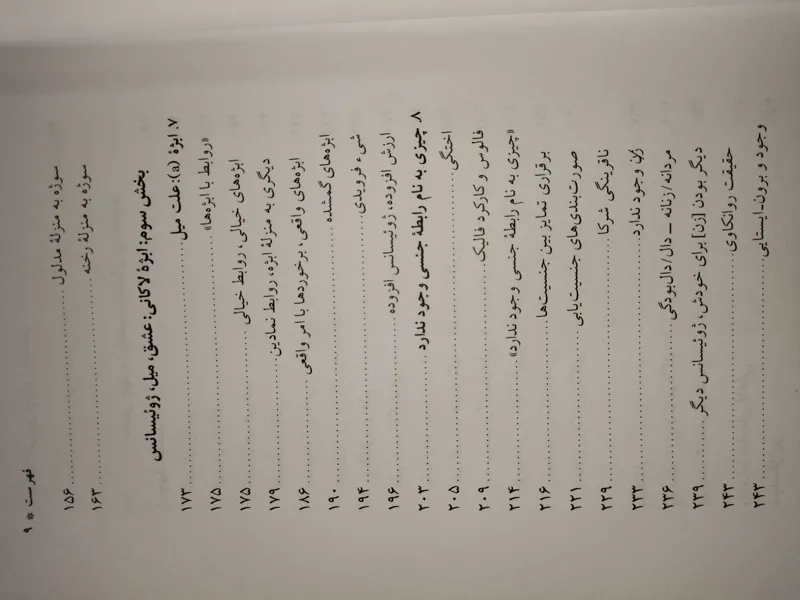 فهرست * ۹
سوژه به منزلهٔ مدلول ........ ۱۵۶
سوژه به منزلهٔ رخنه ........ ۱۶۳
بخش سوم: ابژهٔ لاکانی: عشق، میل، ژوئیسانس
۷. ابژهٔ (a): علت میل ........ ۱۷۳
«روابط با ابژه‌ها» ........ ۱۷۵
ابژه‌های خیالی، روابط خیالی ........ ۱۷۵
دیگری به منزلهٔ ابژه، روابط نمادین ........ ۱۷۹
ابژه‌های واقعی، برخوردها با امر واقعی ........ ۱۸۶
ابژه‌های گمشده ........ ۱۹۰
شیء فرویدی ........ ۱۹۴
ارزش افزوده، ژوئیسانس افزوده ........ ۱۹۶
۸. چیزی به نام رابطهٔ جنسی وجود ندارد ........ ۲۰۳
اختگی ........ ۲۰۵
فالوس و کارکرد فالیک ........ ۲۰۹
«چیزی به نام رابطهٔ جنسی وجود ندارد» ........ ۲۱۴
برقراری تمایز بین جنسیت‌ها ........ ۲۱۶
صورت‌بندی‌های جنسیت‌یابی ........ ۲۲۱
ناقرینگی شرکا ........ ۲۲۹
زن وجود ندارد ........ ۲۳۳
مردانه/زنانه – دال/دال‌بودگی ........ ۲۳۶
دیگر بودن [زن] برای خودش، ژوئیسانس دیگر ........ ۲۳۹
حقیقت روانکاوی ........ ۲۴۳
وجود و برون‌ایستایی ........ ۲۴۳